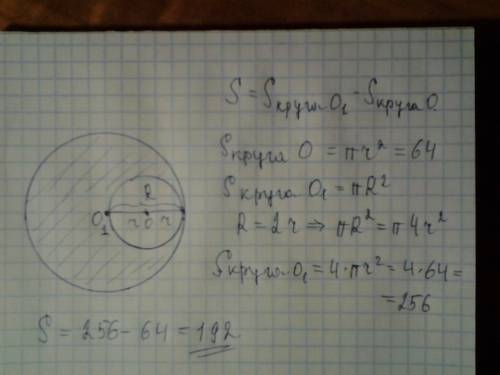 S = Sкруга O₁ - Sкруга O.
Sкруга O = πr² = 64
Sкруга O₁ = πR²
R = 2r ⇒ πR² = π4r²
Sкруга O₁ = 4·πr² = 4·64 =
= 256
R
O₁ r O r
S = 256 - 64 = 192